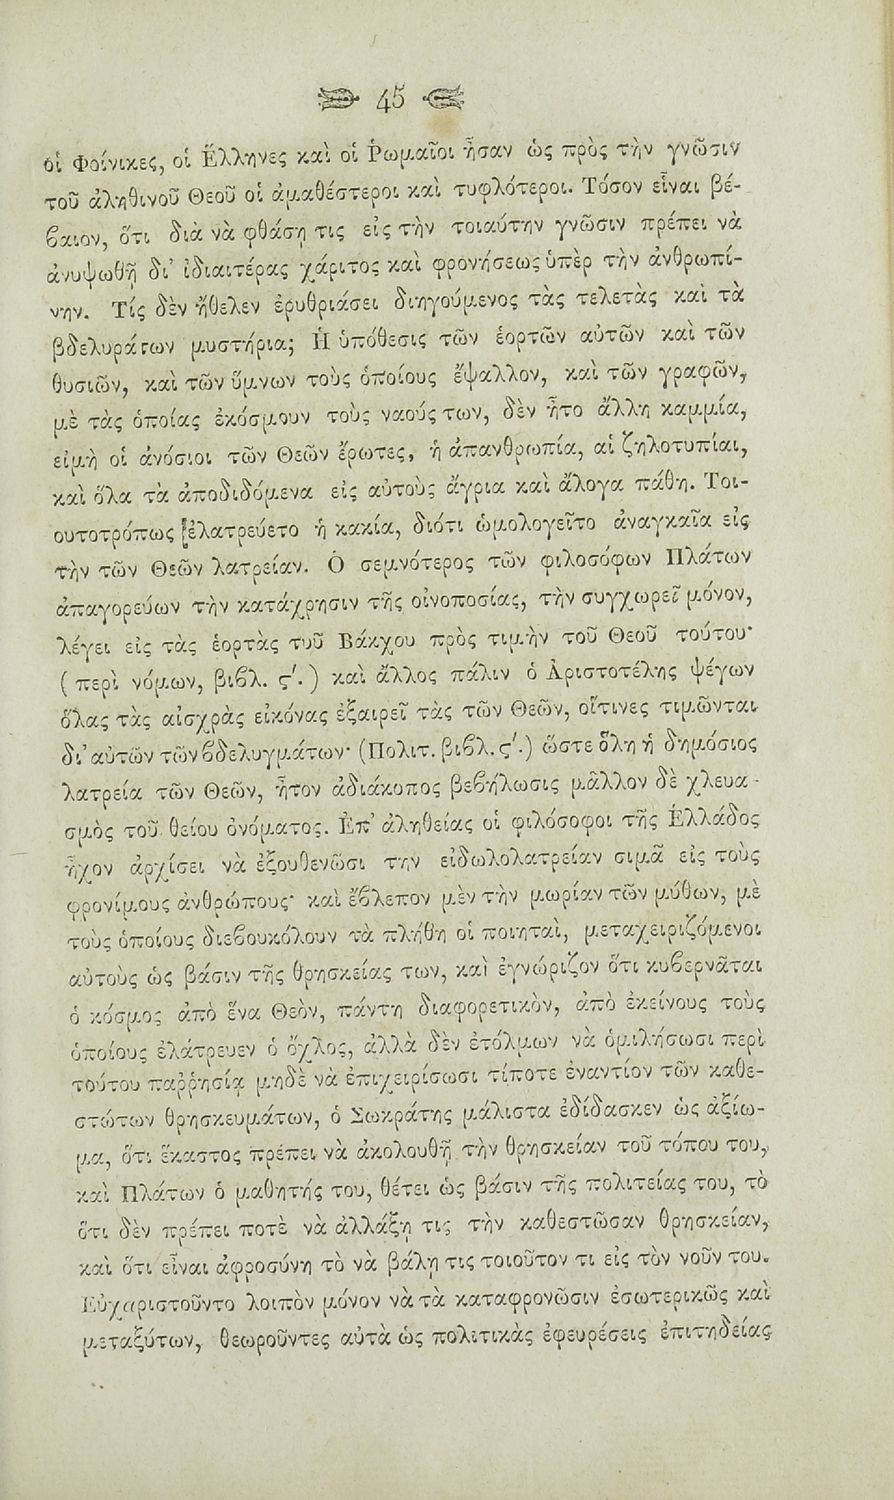 45
οἱ Φοίνικες, οἱ Ἕλληνες καὶ οἱ Ῥωμαῖοι ἦσαν ὡς πρὸς τὴν γνῶσιν
τοῦ ἀληθινοῦ Θεοῦ οἱ ἀμαθέστεροι καὶ τυφλότεροι. Τόσον εἶναι βέ-
βαιον, ὅτι διὰ νὰ φθάσῃ τις εἰς τὴν τοιαύτην γνῶσιν πρέπει νὰ
ἀνυψωθῇ δι’ ἰδιαιτέρας χάριτος καὶ φρονήσεως ὑπὲρ τὴν ἀνθρωπί-
νην. Τίς δὲν ἤθελεν ἐρυθριάσει διηγούμενος τὰς τελετὰς καὶ τὰ
βδελυράτων μυστήρια; Ἡ ὑπόθεσις τῶν ἑορτῶν αὐτῶν καὶ τῶν
θυσιῶν, καὶ τῶν ὕμνων τοὺς ὁποίους ἔψαλλον, καὶ τῶν γραφῶν,
μὲ τὰς ὁποίας ἐκόσμουν τοὺς ναούς των, δὲν ἦτο ἄλλη καμμία,
εἰμὴ οἱ ἀνόσιοι τῶν Θεῶν ἔρωτες, ἡ ἀπανθρωπία, αἱ ζηλοτυπίαι,
καὶ ὅλα τὰ ἀποδιδόμενα εἰς αὐτοὺς ἄγρια καὶ ἄλογα πάθη. Τοι-
ουτοτρόπως ἐλατρεύετο ἡ κακία, διότι ὡμολογεῖτο ἀναγκαῖα εἰς
τὴν τῶν Θεῶν λατρείαν. Ὁ σεμνότερος τῶν φιλοσόφων Πλάτων
ἀπαγορεύων τὴν κατάχρησιν τῆς οἰνοποσίας, τὴν συγχωρεῖ μόνον,
λέγει εἰς τὰς ἑορτὰς τοῦ Βάκχου πρὸς τιμὴν τοῦ Θεοῦ τούτου·
(περὶ νόμων, βιβλ. ς΄.) καὶ ἄλλος πάλιν ὁ Ἀριστοτέλης ψέγων
ὅλας τὰς αἰσχρὰς εἰκόνας ἐξαιρεῖ τὰς τῶν Θεῶν, οἵτινες τιμῶνται
δι’ αὐτῶν τῶν βδελυγμάτων· (Πολιτ. βιβλ. ς΄.) ὥστε ὅλη ἡ δημόσιος
λατρεία τῶν Θεῶν, ἦτον ἀδιάκοπος βεβήλωσις μᾶλλον δὲ χλευα-
σμὸς τοῦ θείου ὀνόματος. Ἐπ’ ἀληθείας οἱ φιλόσοφοι τῆς Ἑλλάδος
ἦχον ἀρχίσει νὰ ἐξουθενῶσι τὴν εἰδωλολατρείαν σιμᾶ εἰς τοὺς
φρονίμους ἀνθρώπους· καὶ ἔβλεπον μὲν τὴν μωρίαν τῶν μύθων, μὲ
τοὺς ὁποίους διεβουκόλουν τὰ πλήθη οἱ ποιηταὶ, μεταχειριζόμενοι
αὐτοὺς ὡς βάσιν τῆς θρησκείας των, καὶ ἐγνώριζον ὅτι κυβερνᾶται
ὁ κόσμος ἀπὸ ἕνα Θεὸν, πάντη διαφορετικὸν, ἀπὸ ἐκείνους τοὺς
ὁποίους ἐλάτρευεν ὁ ὄχλος, ἀλλὰ δὲν ἐτόλμων νὰ ὁμιλήσωσι περὶ
τούτου παῤῥησίᾳ μηδὲ νὰ ἐπιχειρίσωσι τίποτε ἐναντίον τῶν καθε-
στώτων θρησκευμάτων, ὁ Σωκράτης μάλιστα ἐδίδασκεν ὡς ἀξίω-
μα, ὅτι ἕκαστος πρέπει νὰ ἀκολουθῇ τὴν θρησκείαν τοῦ τόπου του,
καὶ Πλάτων ὁ μαθητής του, θέτει ὡς βάσιν τῆς πολιτείας του, τὸ
ὅτι δὲν πρέπει ποτὲ νὰ ἀλλάξῃ τις τὴν καθεστῶσαν θρησκείαν,
καὶ ὅτι εἶναι ἀφροσύνη τὸ νὰ βάλῃ τις τοιοῦτον τι εἰς τὸν νοῦν του.
Εὐχαριστοῦντο λοιπὸν μόνον νὰ τὰ καταφρονῶσιν ἐσωτερικῶς καὶ
μεταξύτων, θεωροῦντες αὐτὰ ὡς πολιτικὰς ἐφευρέσεις ἐπιτηδείας